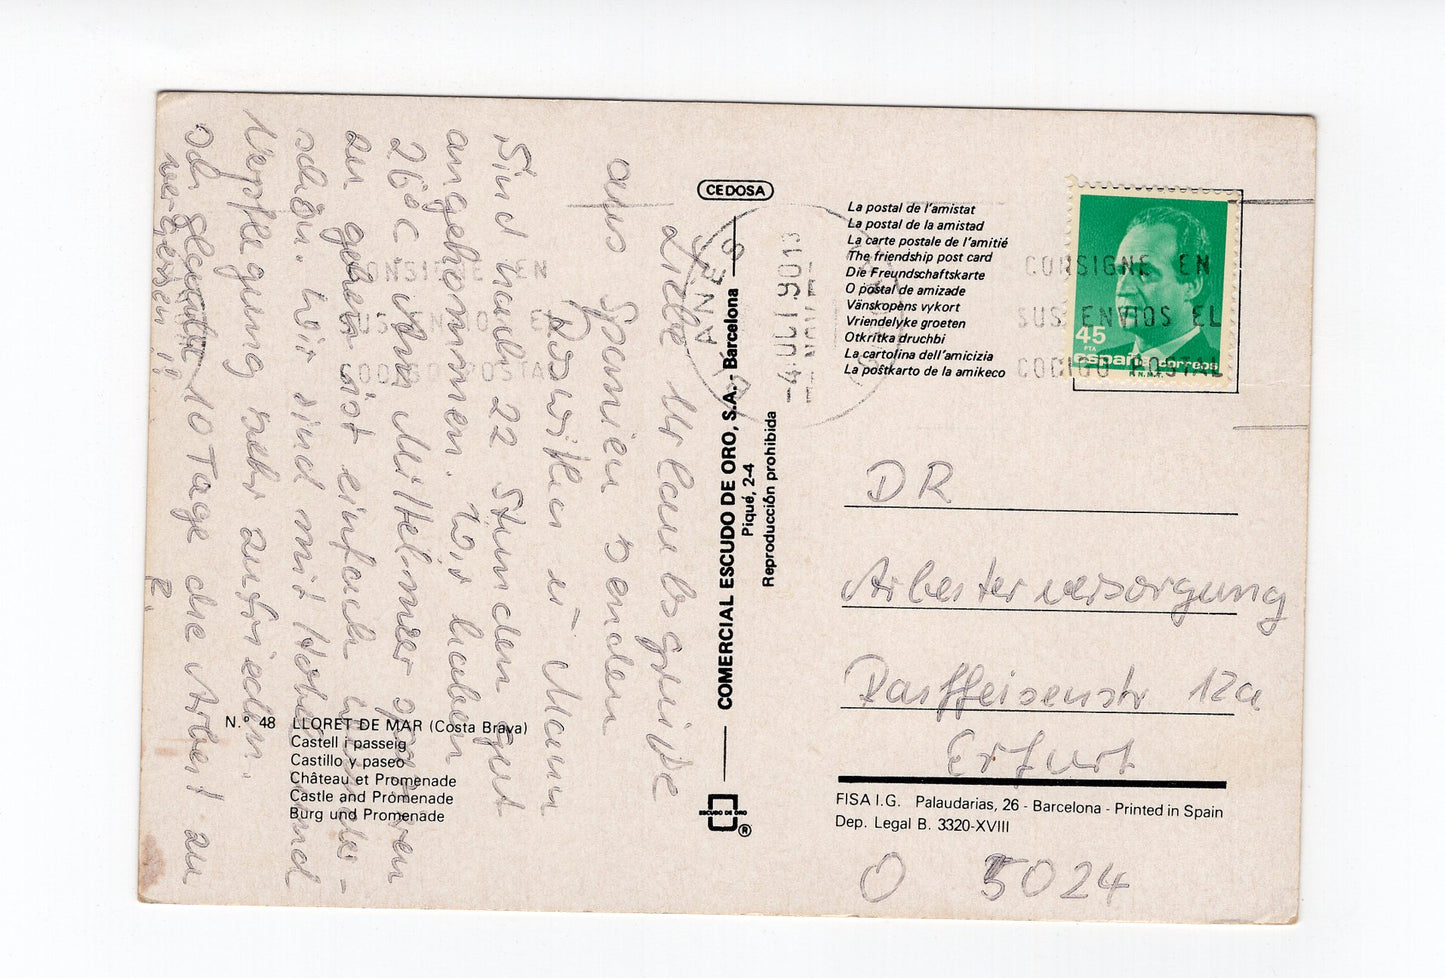 CEDOSA
La postal de l'amistat
La postal de la amistad
La carte postale de l'amitié
The friendship post card
Die Freundschaftskarte
O postal de amizade
Vänskopens vykort
Vriendelyke groeten
Otkritka druchbi
La cartolina dell'amicizia
La poŝtkarto de la amikeco
45
PTA
españa correos
CONSIGNE EN
SUS ENVIOS EL
CODIGO POSTAL
4 OCT 90 13
CONSIGNE EN
SUS ENVIOS EL
CODIGO POSTAL
COMERCIAL ESCUDO DE ORO, S.A. - Barcelona
Piqué, 2-4
Reproducción prohibida
ESCUDO DE ORO
®
Liebe Urlaubsgrüße
aus Spanien senden
u. Mann
Sind nach 22 Stunden gut
angekommen. Wir haben
26°C. Am Mittelmeer
zu gehen ist einfach
schön. Wir sind mit Hotel und
Verpflegung sehr zufrieden.
10 Tage die Arbeit zu
vergessen!!
DR
Arbeiterversorgung
Raiffeisenstr 12a
Erfurt
O 5024
N.º 48 LLORET DE MAR (Costa Brava)
Castell i passeig
Castillo y paseo
Château et Promenade
Castle and Promenade
Burg und Promenade
FISA I.G. Palaudarias, 26 - Barcelona - Printed in Spain
Dep. Legal B. 3320-XVIII